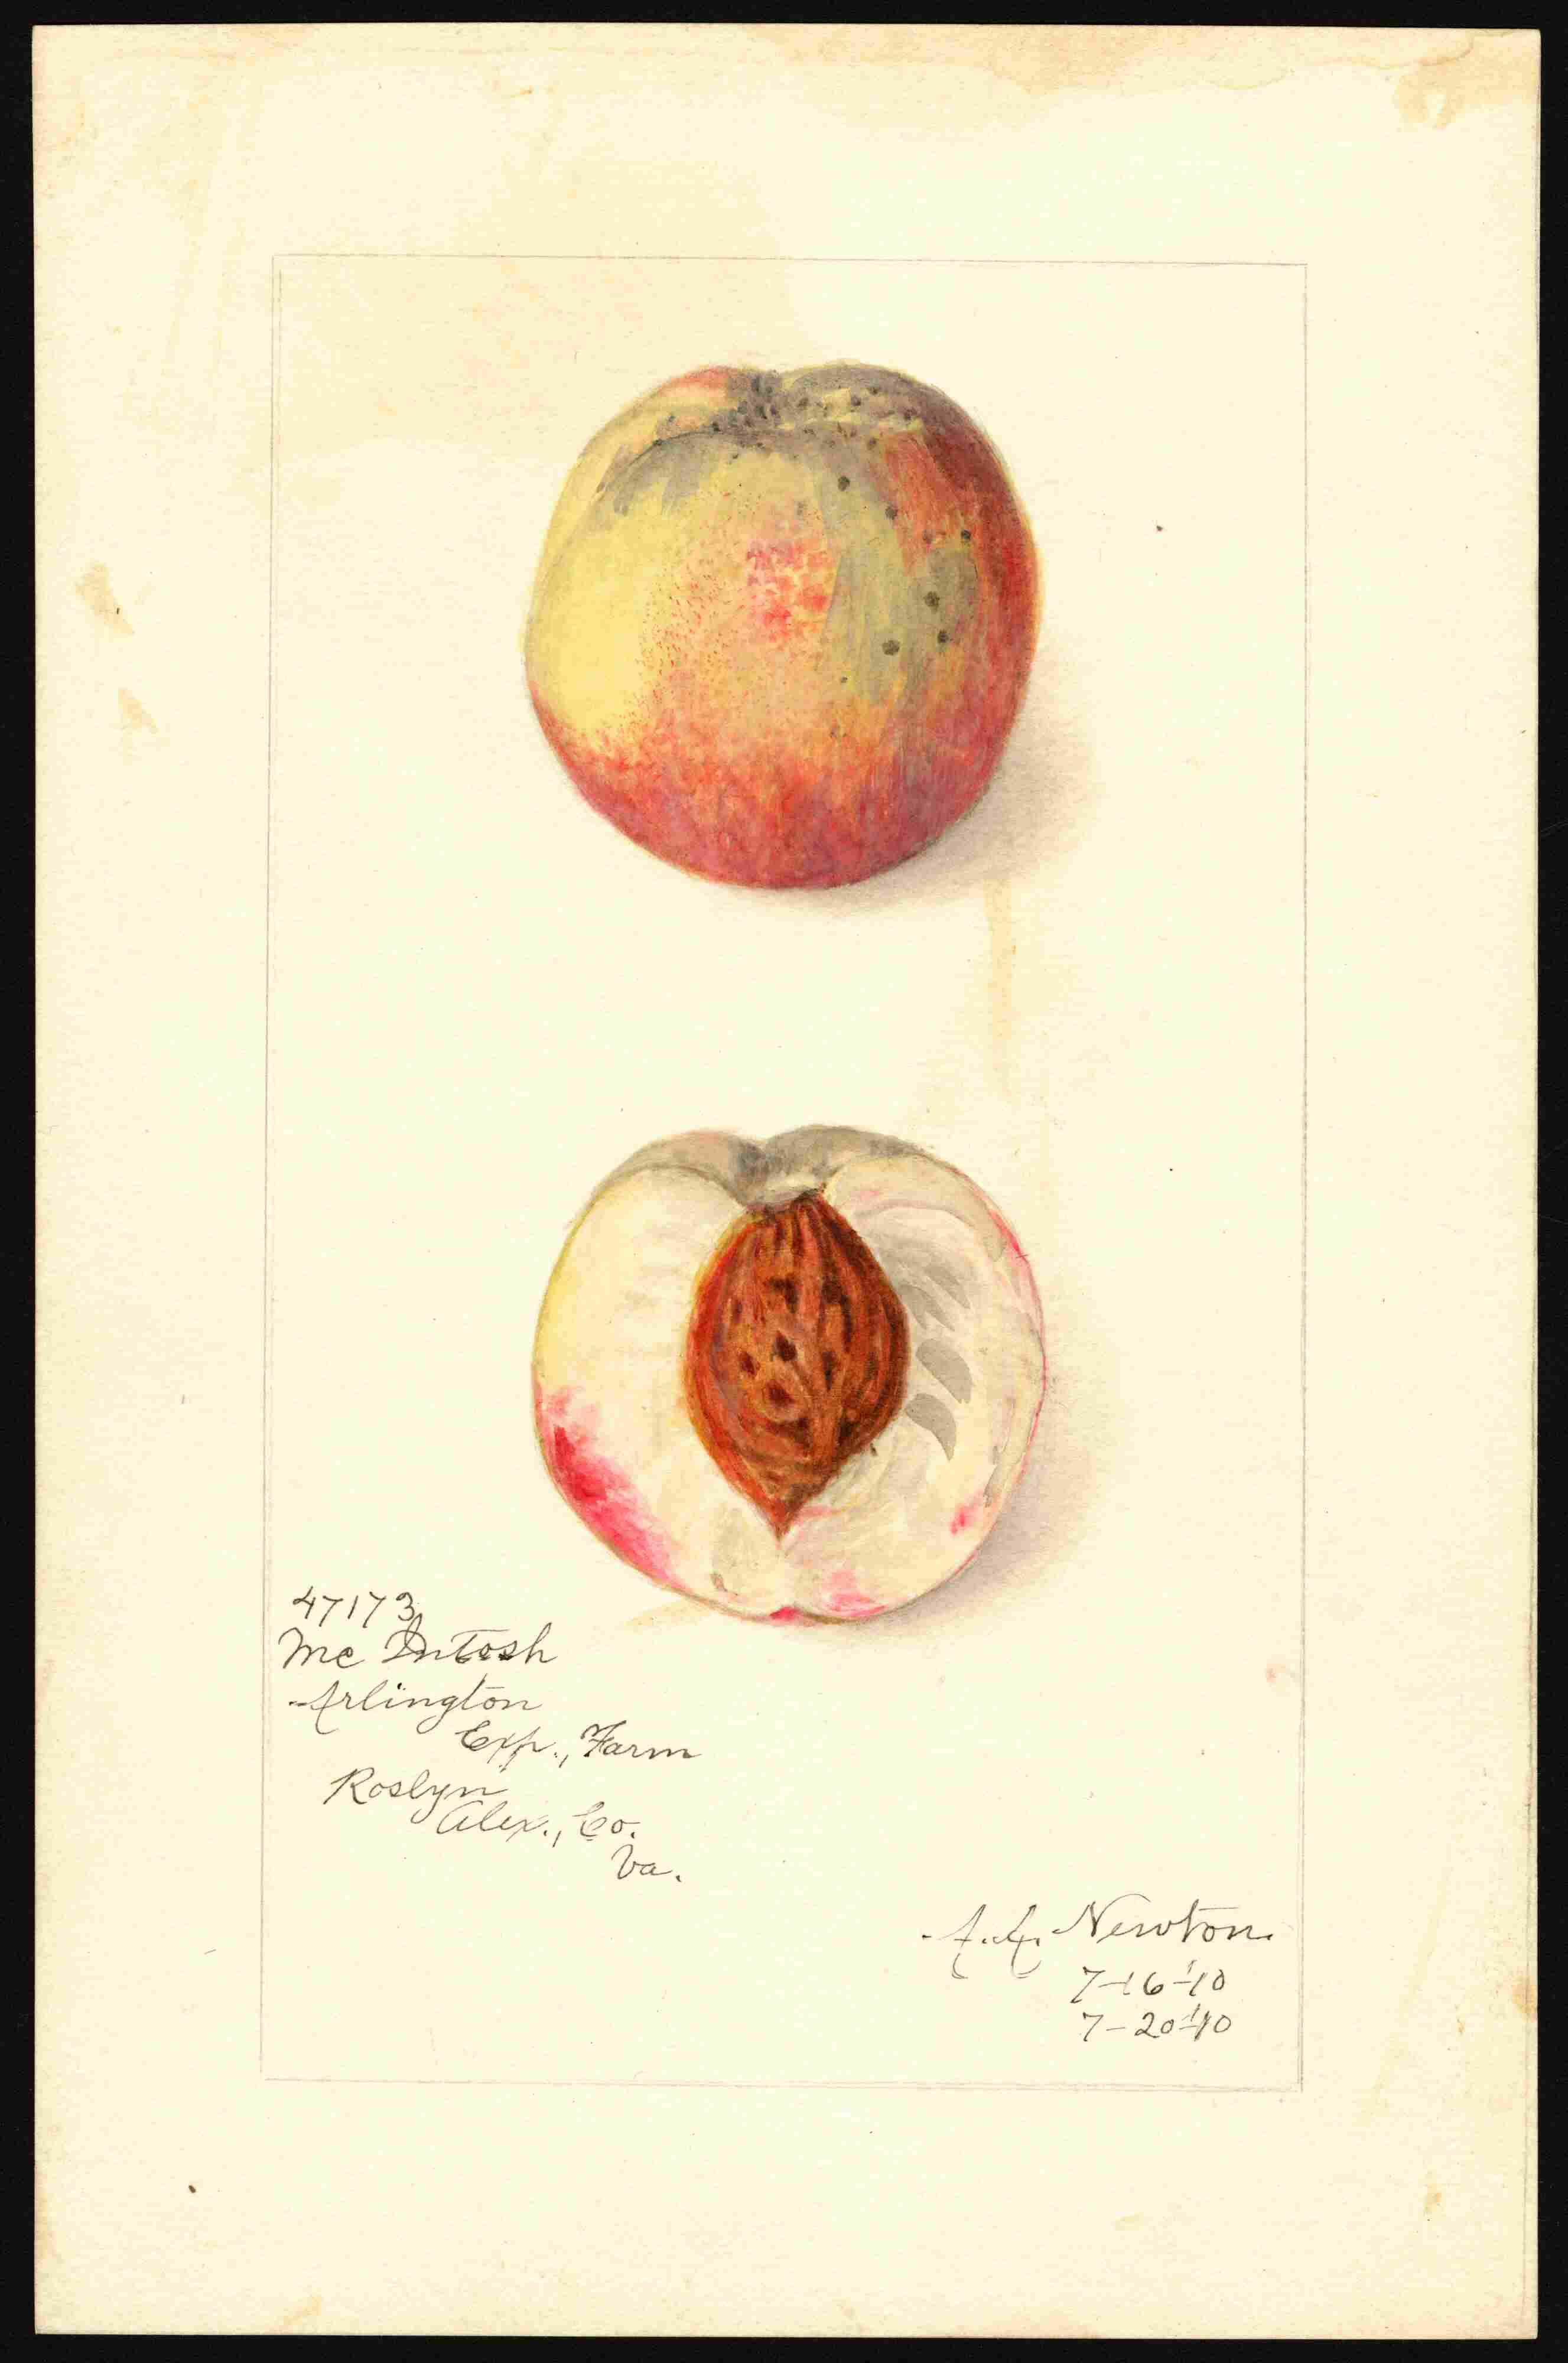 47173
Mc Intosh
Arlington
Exp., Farm
Roslyn
Alex., Co.
Va.
A.A. Newton.
7-16-'10
7-20-'10